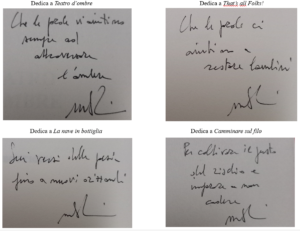 Dedica a Teatro d'ombre
Che le parole vi aiutino
sempre ad
attraversare
l'ombra
Dedica a That's all Folks!
Che le parole ci
aiutino a
restare bambini
Dedica a La nave in bottiglia
Sui versi della poesia
fino a nuovi orizzonti
Dedica a Camminare sul filo
Per coltivare il gusto
del rischio e
imparare a non
cadere